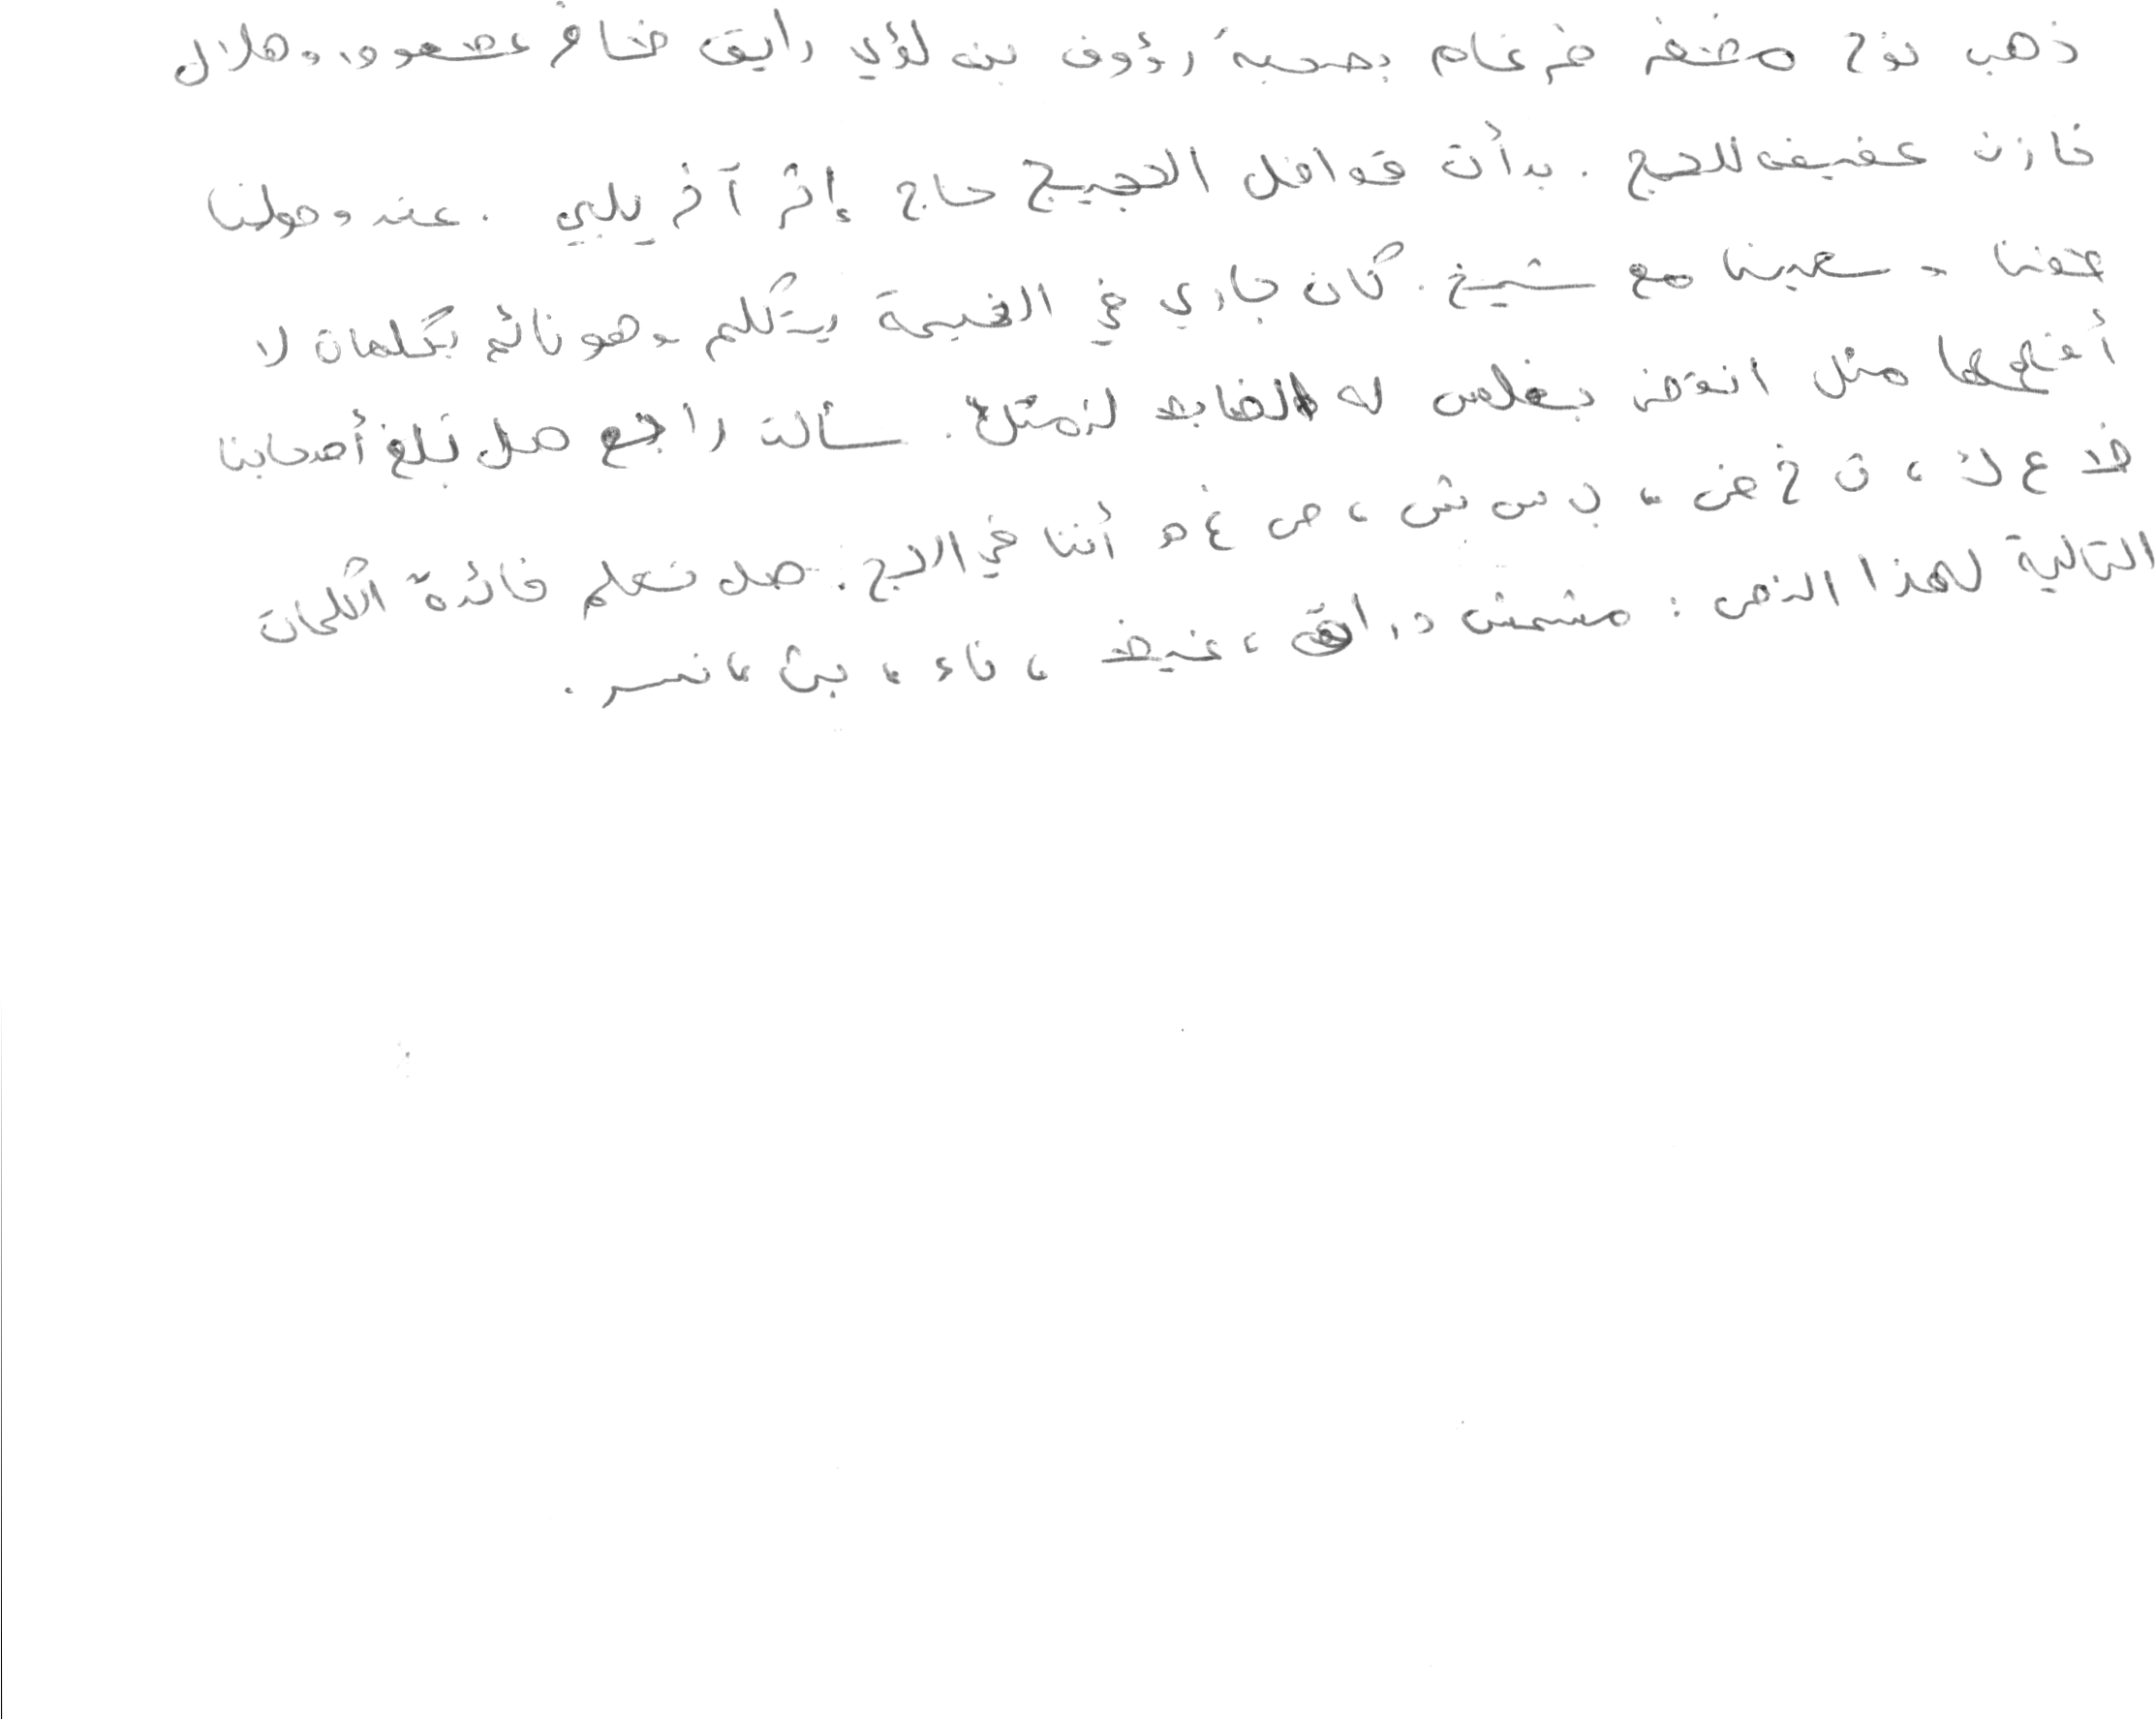 ذهب نوح مظفر ضرغام بصحبة رؤوف بن لؤي رايق ظافر عطعوط وهلال
خازن عفيف للحج . بدأت قوافل الحجيج حاج إثر آخر يلبي . عند وصولنا
طفنا و سعينا مع شيخ . كان جاري في الخيمة يتكلم وهو نائم بكلمات لا
أفقهها مثل انتقض بغلس له الضابط لزمثل . سألت راجح هل بلغ أصحابنا
ظ ع ك ، ق خ ض ، ب س ش ، ص غ و أننا في الحج . هل تعلم فائدة الكلمات
التالية لهذا النص : مشمش دراق ، غيظ ، ناء ، بث ، نسر .